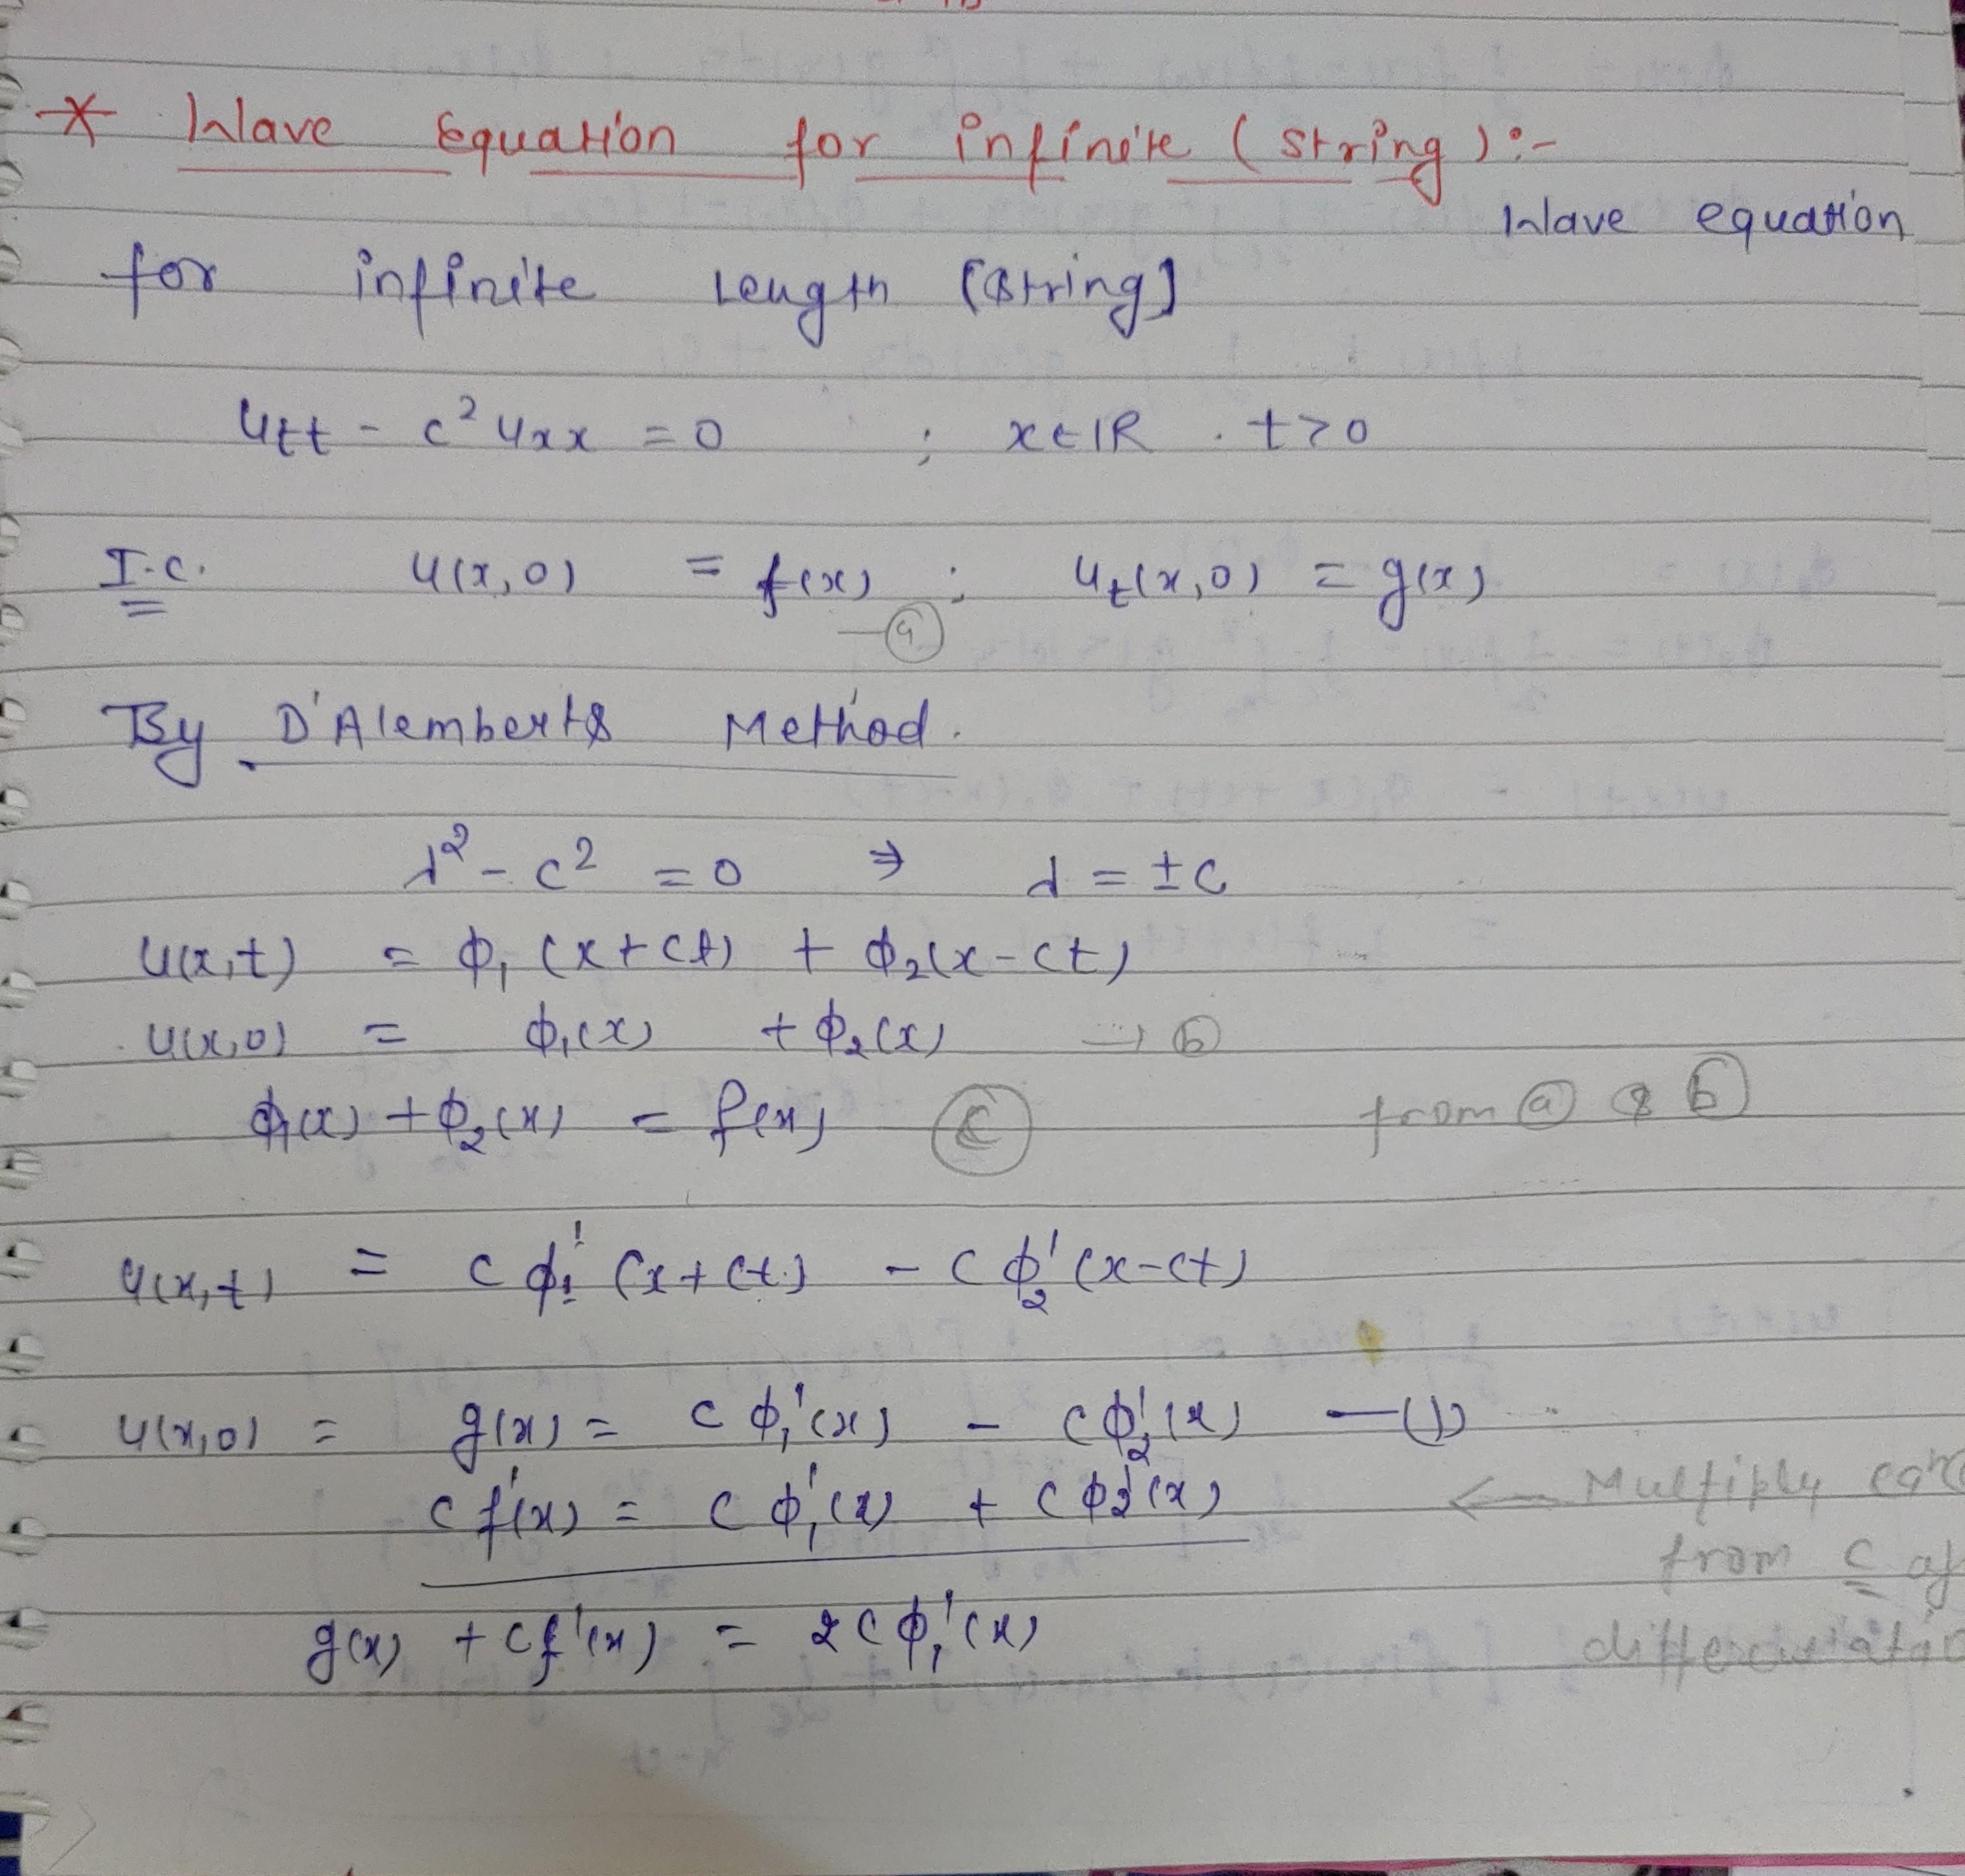 * Wave Equation for infinite (string) :-
Wave equation
for infinite Length [string]
u_tt - c² u_xx = 0 ; x ∈ ℝ . t > 0
I.C. u(x,0) = f(x) ; u_t(x,0) = g(x)
— ⓐ
By D'Alemberts Method.
λ² - c² = 0 ⇒ λ = ±c
u(x,t) = ϕ₁(x+ct) + ϕ₂(x-ct)
u(x,0) = ϕ₁(x) + ϕ₂(x) → ⓑ
ϕ₁(x) + ϕ₂(x) = f(x) ⓒ from ⓐ & ⓑ
u(x,t) = c ϕ₁'(x+ct) - c ϕ₂'(x-ct)
u(x,0) = g(x) = c ϕ₁'(x) - c ϕ₂'(x) — (1)
c f'(x) = c ϕ₁'(x) + c ϕ₂'(x) ← Multiply
from c
g(x) + c f'(x) = 2c ϕ₁'(x)